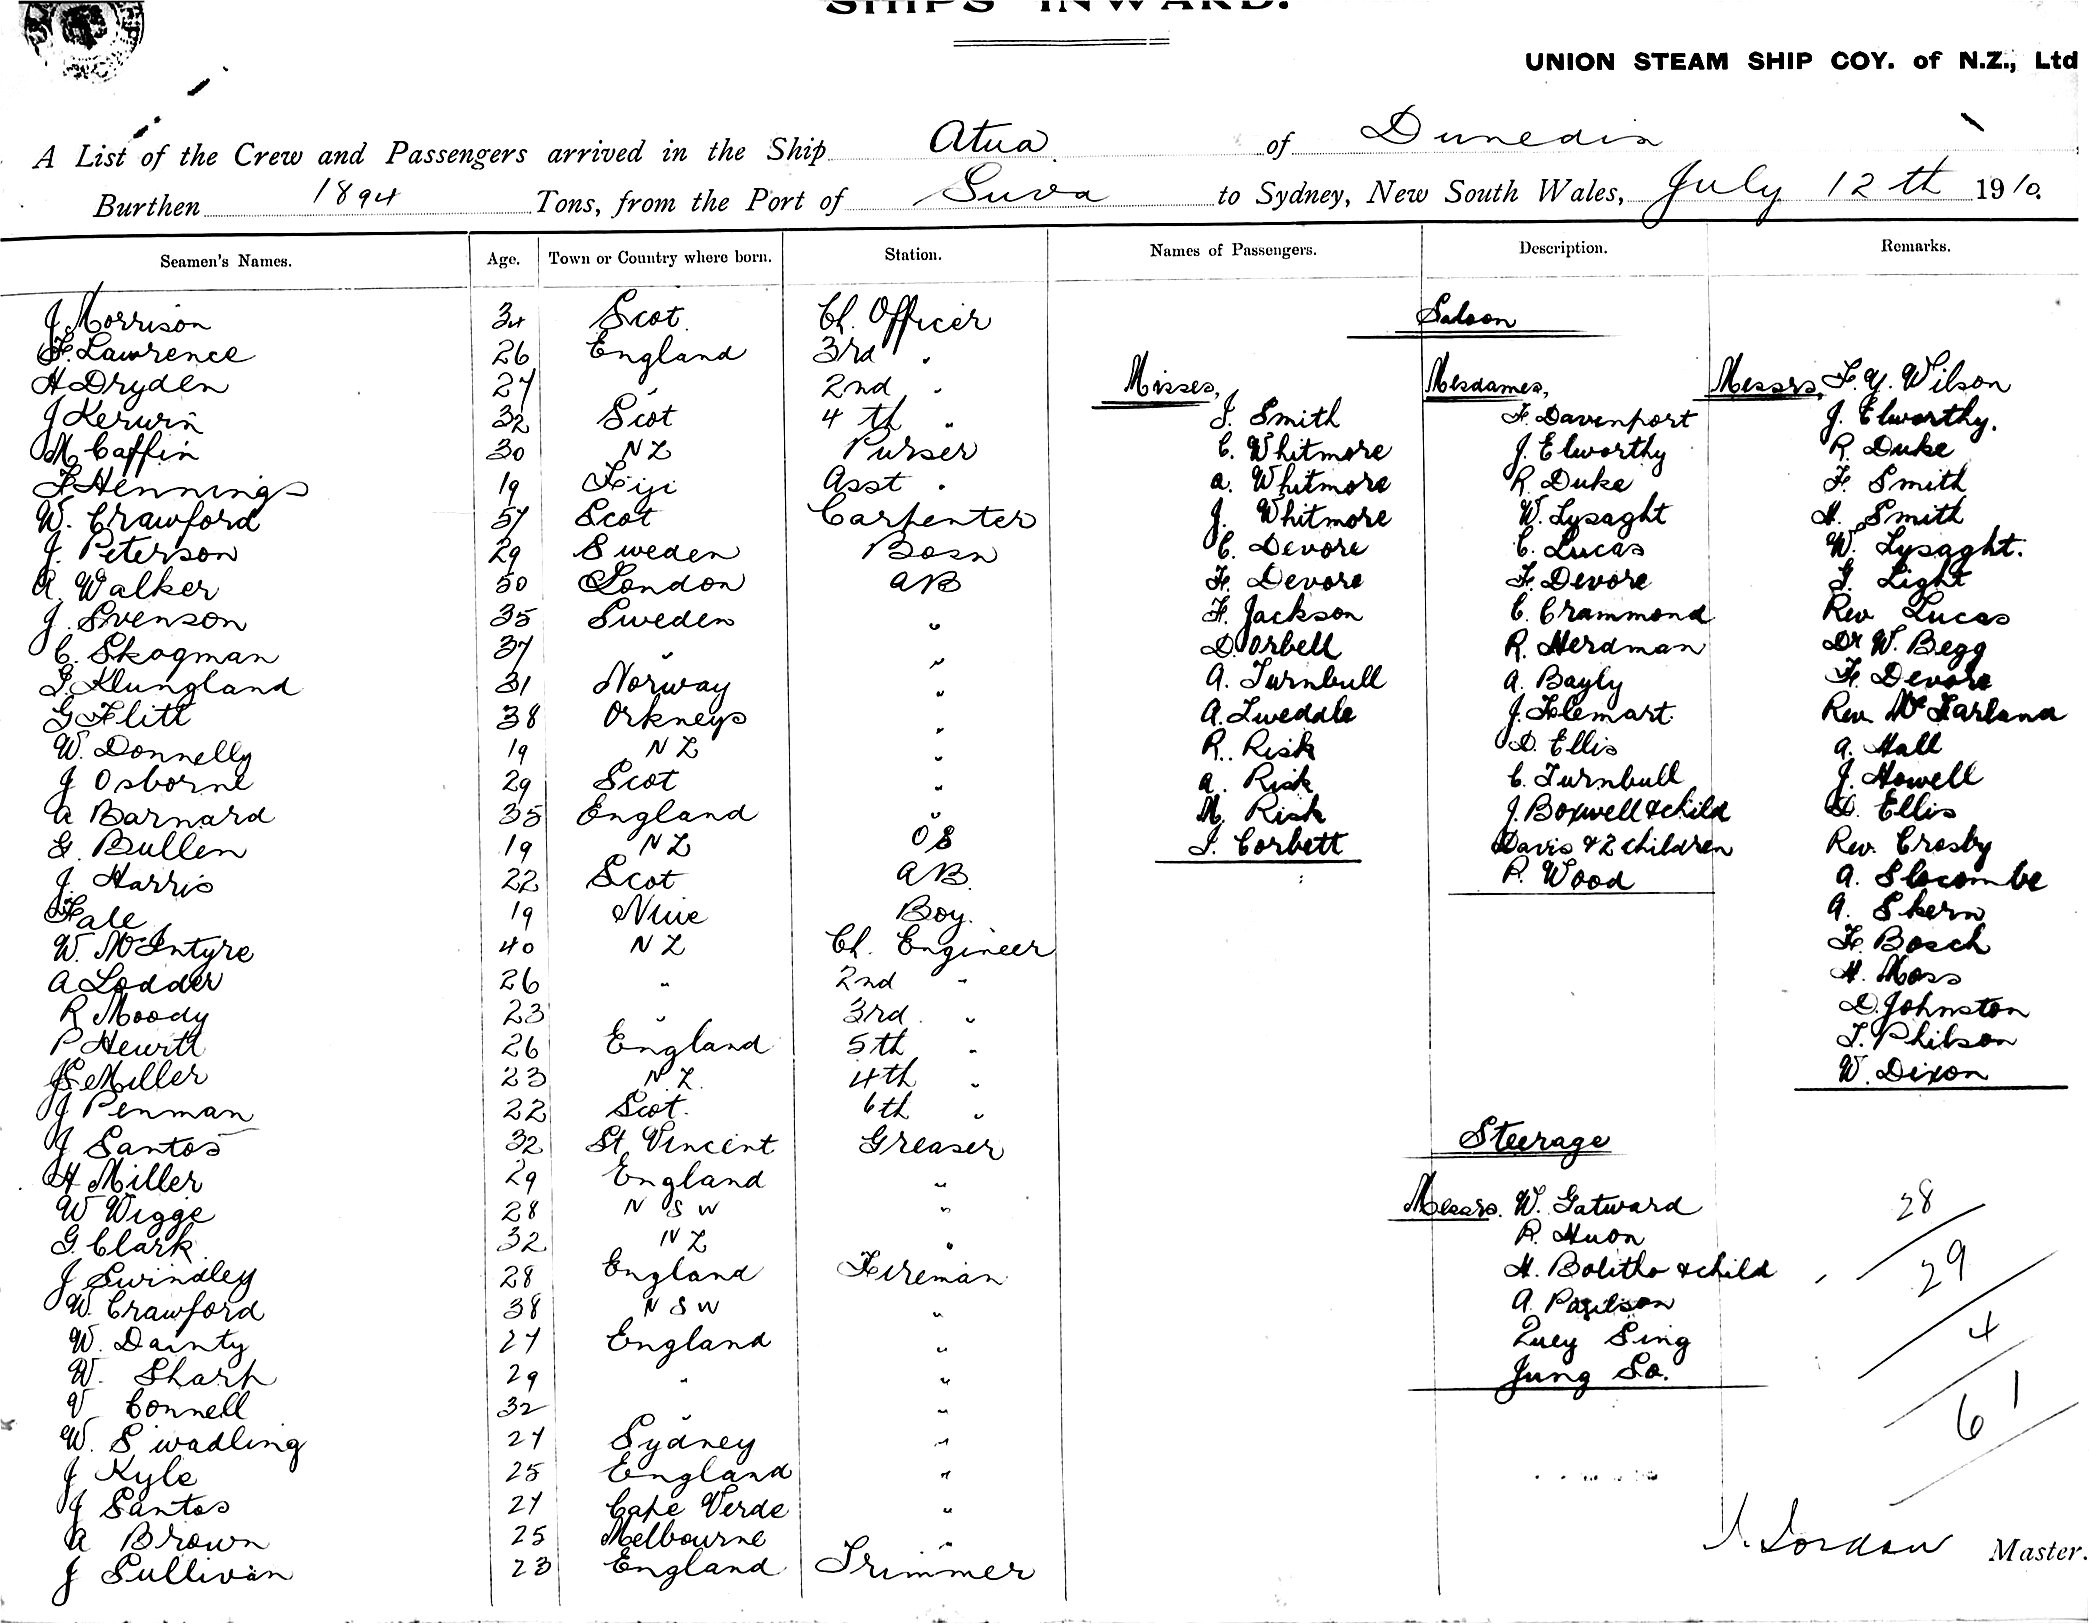 SHIPS INWARD.
UNION STEAM SHIP COY. of N.Z., Ltd
A List of the Crew and Passengers arrived in the Ship Atua of Dunedin
Burthen 1894 Tons, from the Port of Suva to Sydney, New South Wales, July 12th 1910.
Seamen's Names. Age. Town or Country where born. Station. Names of Passengers. Description. Remarks.
J Morrison 34 Scot. Ch. Officer
F. Lawrence 26 England 3rd "
H Dryden 27 " 2nd "
J Kerwin 32 Scot 4th "
M Caffin 30 NZ Purser
F Hennings 19 Fiji Asst "
W. Crawford 57 Scot Carpenter
J. Peterson 29 Sweden Bosn
A. Walker 50 London AB
J. Svenson 35 Sweden "
C. Skogman 37 " "
G Klungland 31 Norway "
G Flitt 38 Orkneys "
W. Donnelly 19 NZ "
J Osborne 29 Scot "
A Barnard 35 England "
G. Bullen 19 NZ OS
J. Harris 22 Scot AB.
Fale 19 Niue Boy.
W. McIntyre 40 NZ Ch. Engineer
A Lodder 26 " 2nd "
R Moody 23 " 3rd "
P Hewitt 26 England 5th "
Miller 23 NZ. 4th "
J Penman 22 Scot. 6th "
J Santos 32 St Vincent Greaser
H Miller 29 England "
W Wigge 28 NSW "
G. Clark 32 NZ "
J Swindley 28 England Fireman
W. Crawford 38 NSW "
W. Dainty 27 England "
W. Sharp 29 " "
V Connell 32 " "
W. Swadling 27 Sydney "
J Kyle 25 England "
J Santos 27 Cape Verde "
A Brown 25 Melbourne "
J Sullivan 23 England Trimmer
Saloon
Misses,
J. Smith
C. Whitmore
A. Whitmore
J. Whitmore
C. Devore
F. Devore
F. Jackson
D. Orbell
A. Turnbull
A. Tweddle
R. Risk
A. Risk
M. Risk
J. Corbett
Mesdames,
F. Davenport
J. Elworthy
R. Duke
W. Lysaght
C. Lucas
F. Devore
C. Crammond
R. Herdman
A. Bayly
J. Flemart
D. Ellis
C. Turnbull
J. Boxwell & child
Davis & 2 children
R. Wood
Messrs. F. Y. Wilson
J. Elworthy.
R. Duke
F. Smith
H. Smith
W. Lysaght.
G. Light
Rev Lucas
Dr W. Begg
F. Devore
Rev. McFarland
A. Hall
J. Howell
D. Ellis
Rev. Crosby
A. Slocombe
A. Skern
F. Bosch
H. Moss
D. Johnston
T. Philson
W. Dixon
Steerage
Messrs. W. Gatward
R. Huon
H. Bolitho & child
A.
Quey Sing
Jung So.
28
29
4
61
Master.